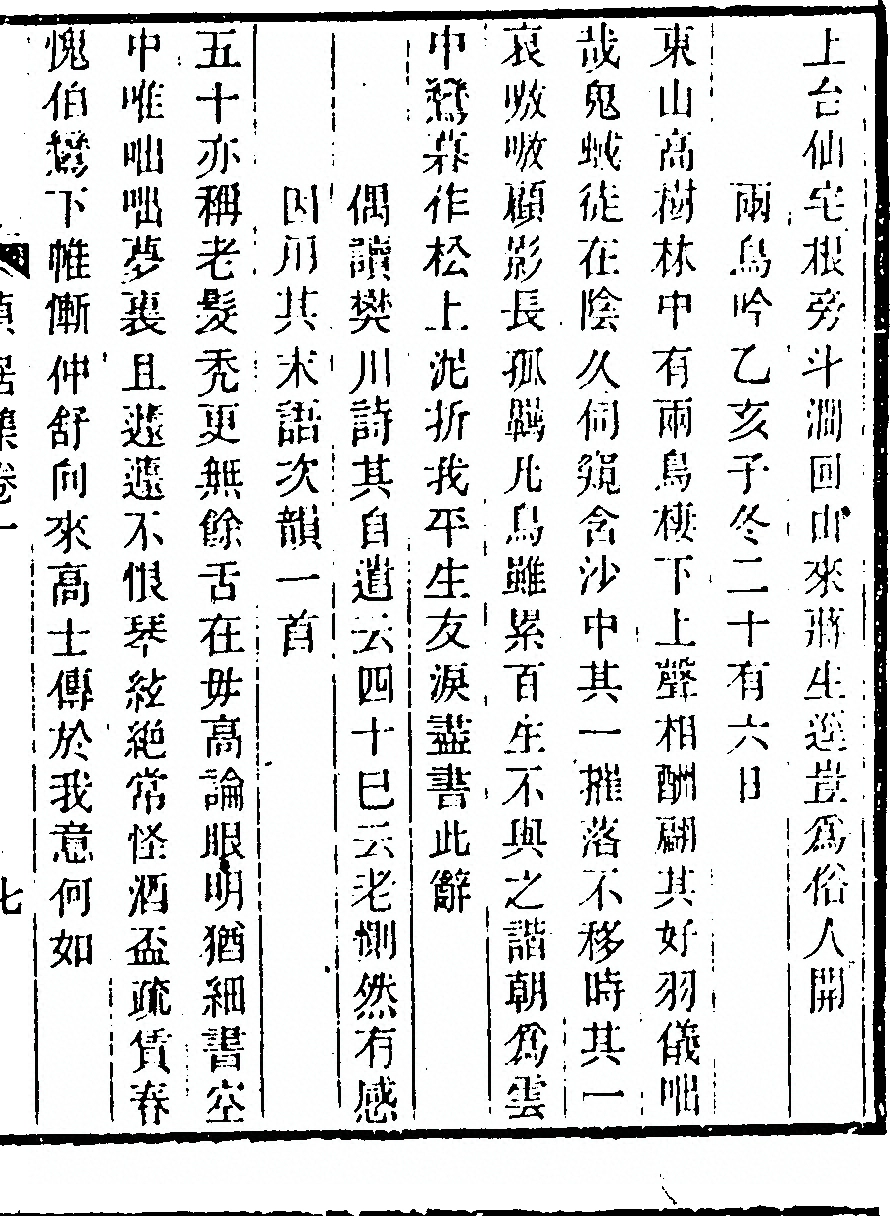 上台仙宅根旁斗澗回山來蔣生逕豈爲俗人開
兩鳥吟乙亥子冬二十有六日
東山高樹林中有兩鳥棲下上聲相酬翩其好羽儀咄
哉鬼蜮徒在陰久伺窺含沙中其一摧落不移時其一
哀嗷嗷顧影長孤羈凡鳥雖累百生不與之諧朝爲雲
中鶱暮作松上泥折我平生友淚盡書此辭
偶讀樊川詩其自遣云四十已云老惻然有感
因用其末語次韻一首
五十亦稱老髮禿更無餘舌在毋高論眼明猶細書空
中唯咄咄夢裏且蘧蘧不恨琴絃絶常怪酒盃疏賃舂
愧伯鸞下帷慚仲舒向來高士傳於我意何如
貞居集卷一
七